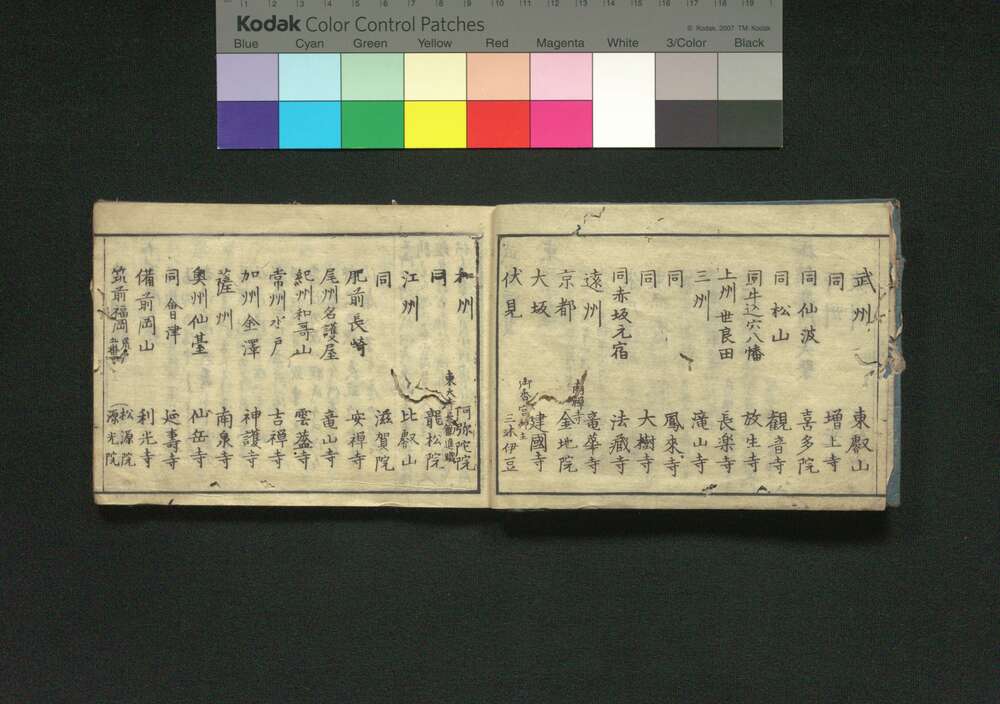 1 2 3 4 5 6 7 8 9 10 11 12 13 14 15 16 17 18 19
Kodak Color Control Patches
© Kodak, 2007 TM: Kodak
Blue Cyan Green Yellow Red Magenta White 3/Color Black
武州 東叡山
同 増上寺
同仙波 喜多院
同松山 観音寺
同牛込穴八幡 放生寺
上州世良田 長楽寺
三州 滝山寺
同 鳳来寺
同 大樹寺
同赤坂元宿 法蔵寺
遠州 竜華寺
京都 南禅寺 金地院
大坂 建國寺
伏見 御香宮神主 三木伊豆
和州 阿弥陀院
同 東大寺 龍松院
江州 比叡山
同 滋賀院
肥前長崎 安禅寺
尾州名護屋 竜山寺
紀州和哥山 雲蓋寺
常州水戸 吉禅寺
加州金澤 神護寺
薩州 南泉寺
奥州仙臺 仙岳寺
同會津 延壽寺
備前岡山 利光寺
筑前福岡 松源院
源光院